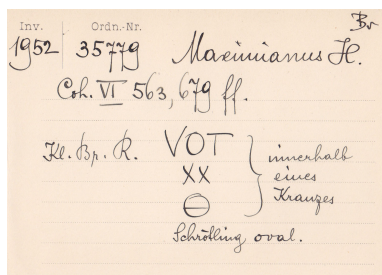 Inv. Ordn.-Nr. Br
1952 35779 Maximianus H.
Coh. VI 563, 679 ff.
Kl. Br. R. VOT innerhalb
XX eines
⊖ Kranzes
Schrötling oval.